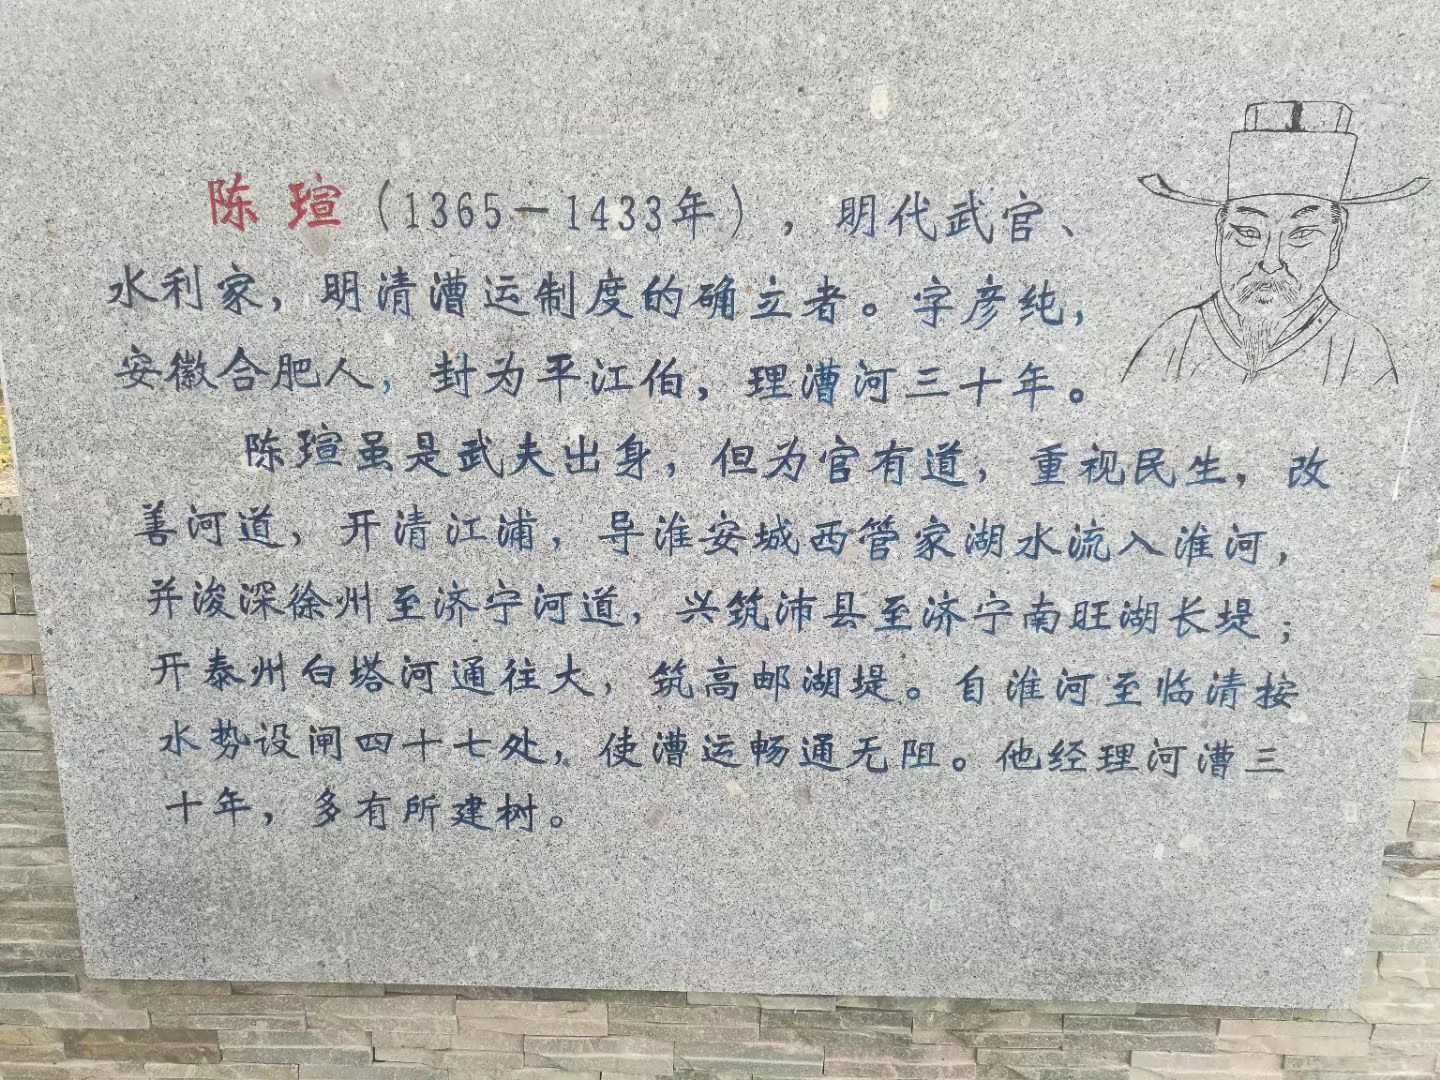 陈瑄（1365—1433年），明代武官、
水利家，明清漕运制度的确立者。字彦纯，
安徽合肥人，封为平江伯，理漕河三十年。
陈瑄虽是武夫出身，但为官有道，重视民生，改
善河道，开清江浦，导淮安城西管家湖水流入淮河，
并浚深徐州至济宁河道，兴筑沛县至济宁南旺湖长堤；
开泰州白塔河通往大，筑高邮湖堤。自淮河至临清按
水势设闸四十七处，使漕运畅通无阻。他经理河漕三
十年，多有所建树。